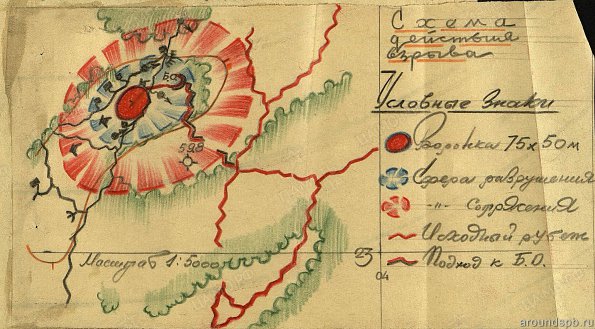 Схема
действия
взрыва
Условные знаки
Воронка 75х50м
Сфера разрушения
-"- сотрясения
Исходный рубеж
Подход к Б.О.
59,8
Масштаб 1:5000
23
04
aroundspb.ru